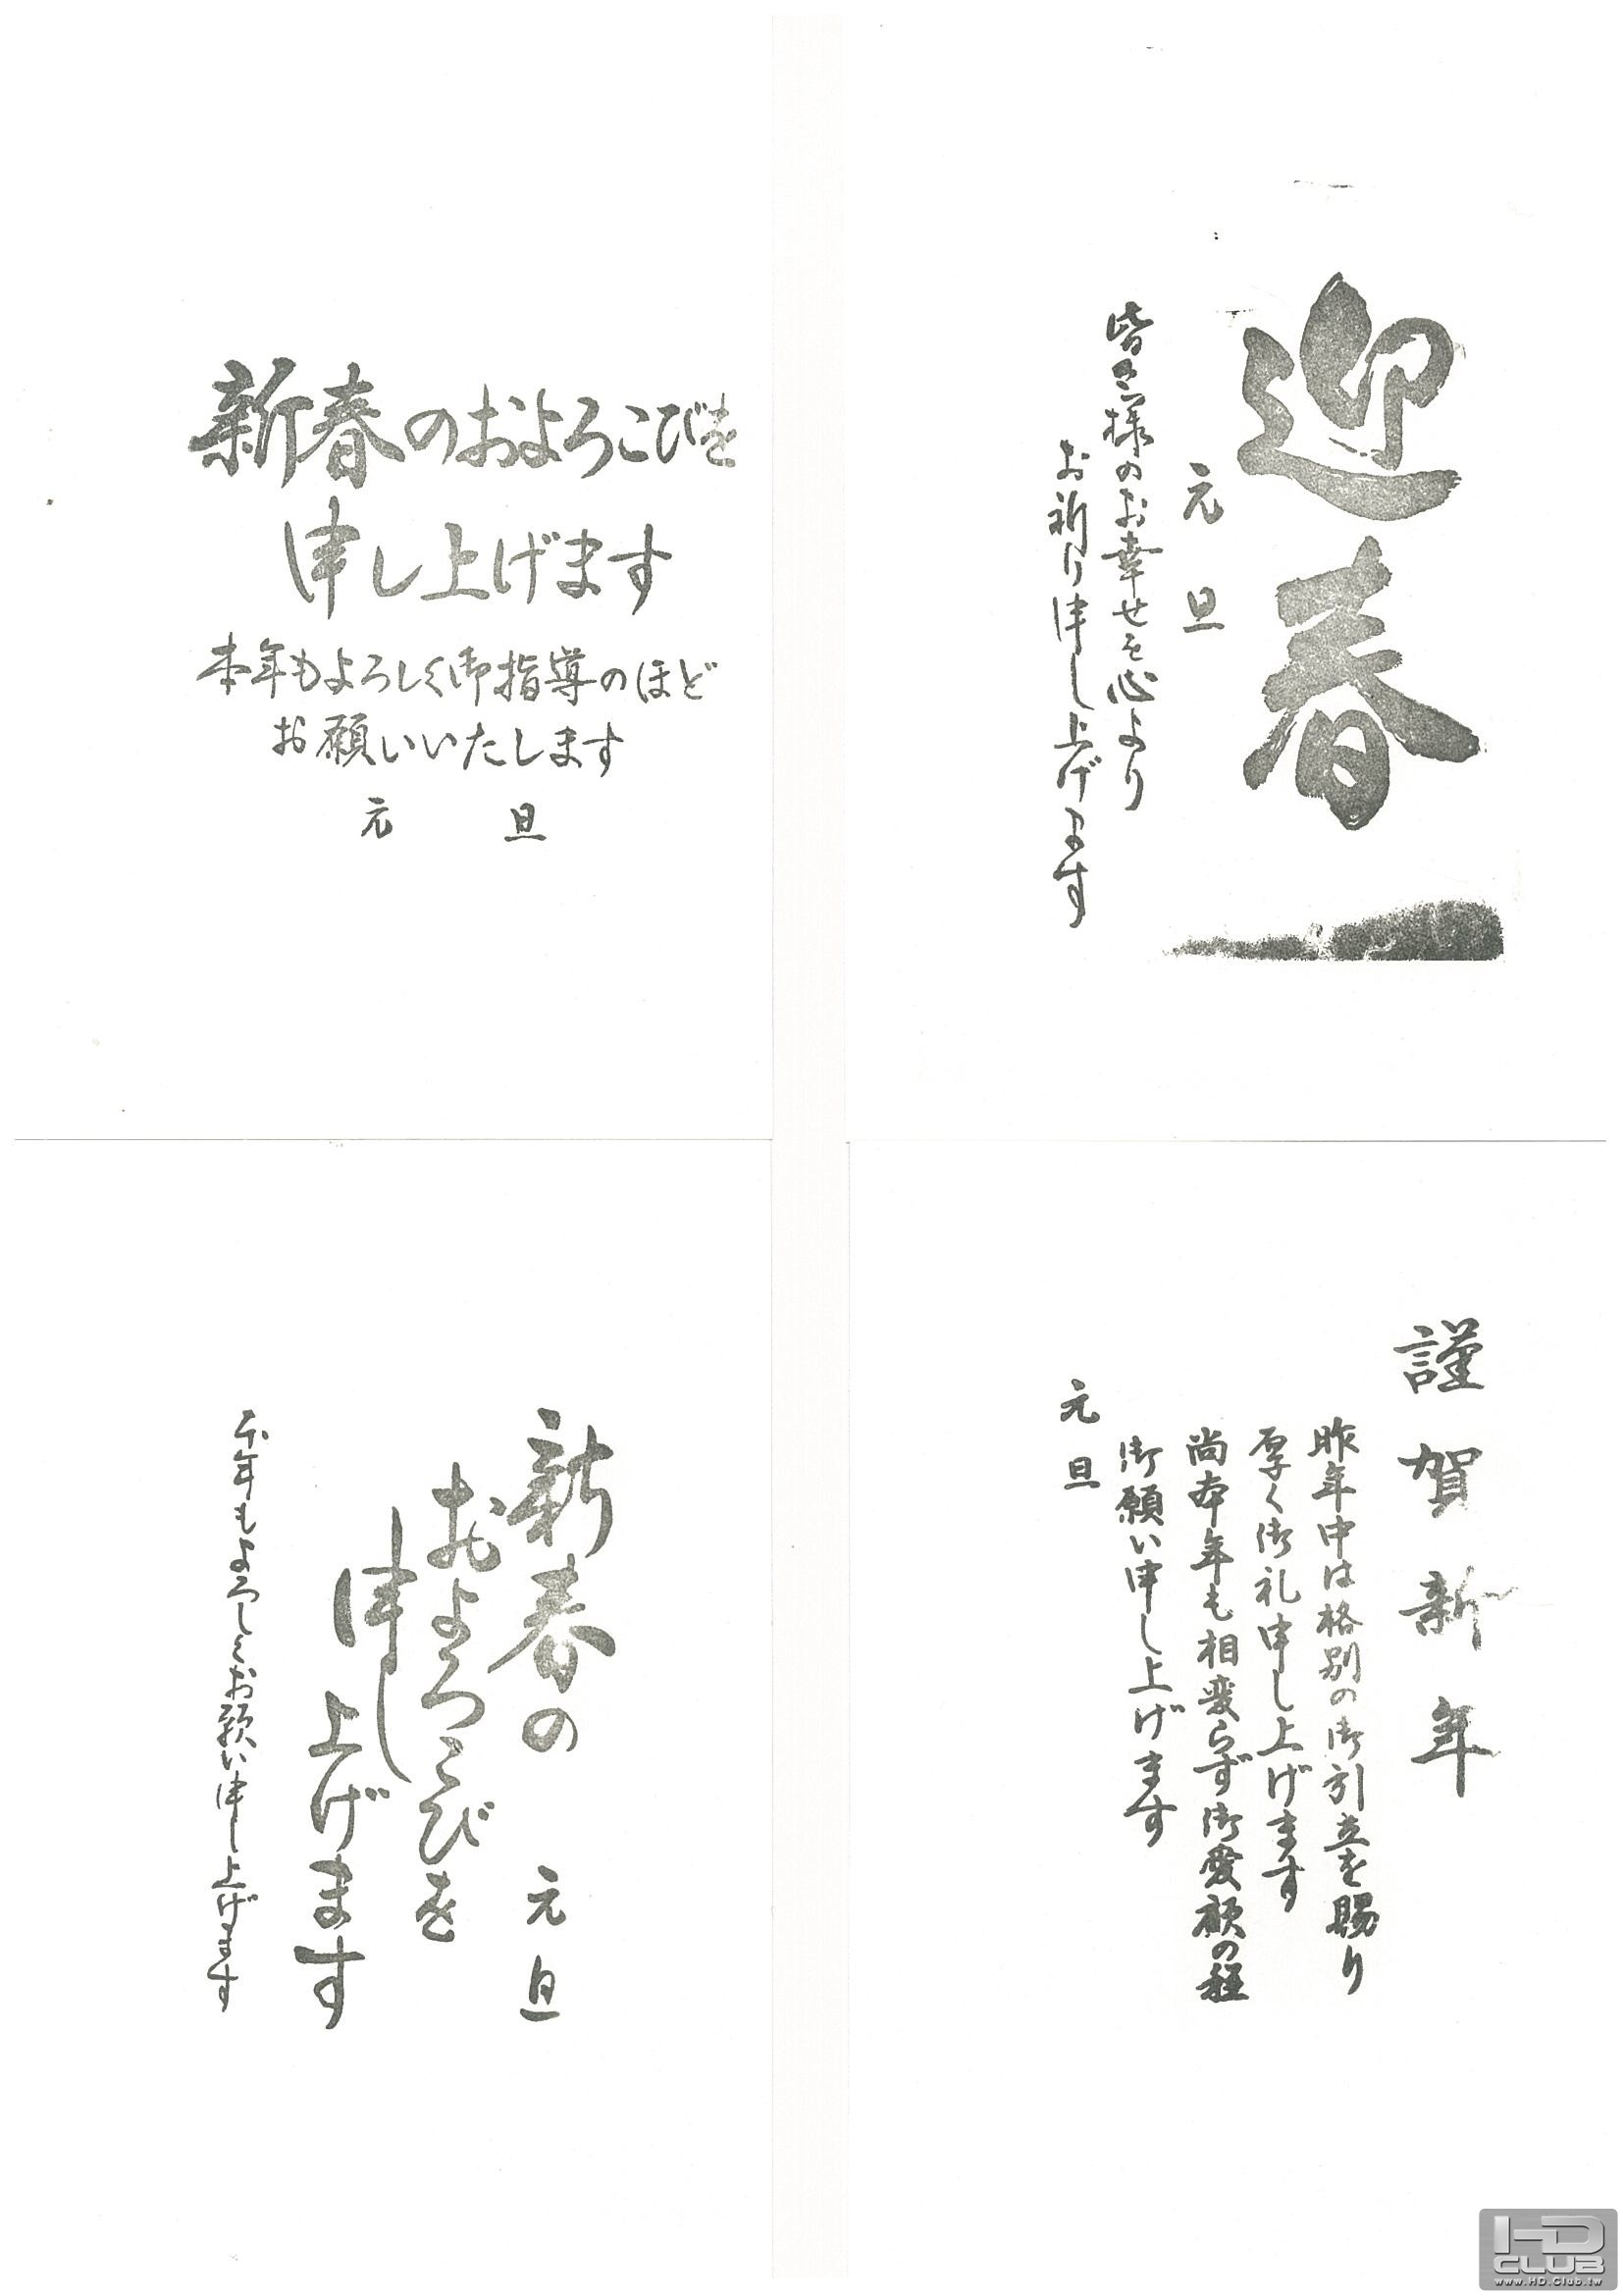 新春のおよろこびを
申し上げます
本年もよろしく御指導のほど
お願いいたします
元旦
迎春
元旦
皆さ様のお幸せを心より
お祈り申し上げます
新春の
元旦
およろこびを
申し
上げます
本年もよろしくお願い申し上げます
謹賀新年
昨年中は格別の御引立を賜り
厚く御礼申し上げます
尚本年も相変らず御愛顧の程
御願い申し上げます
元旦
HD
CLUB
www.HD.Club.tw